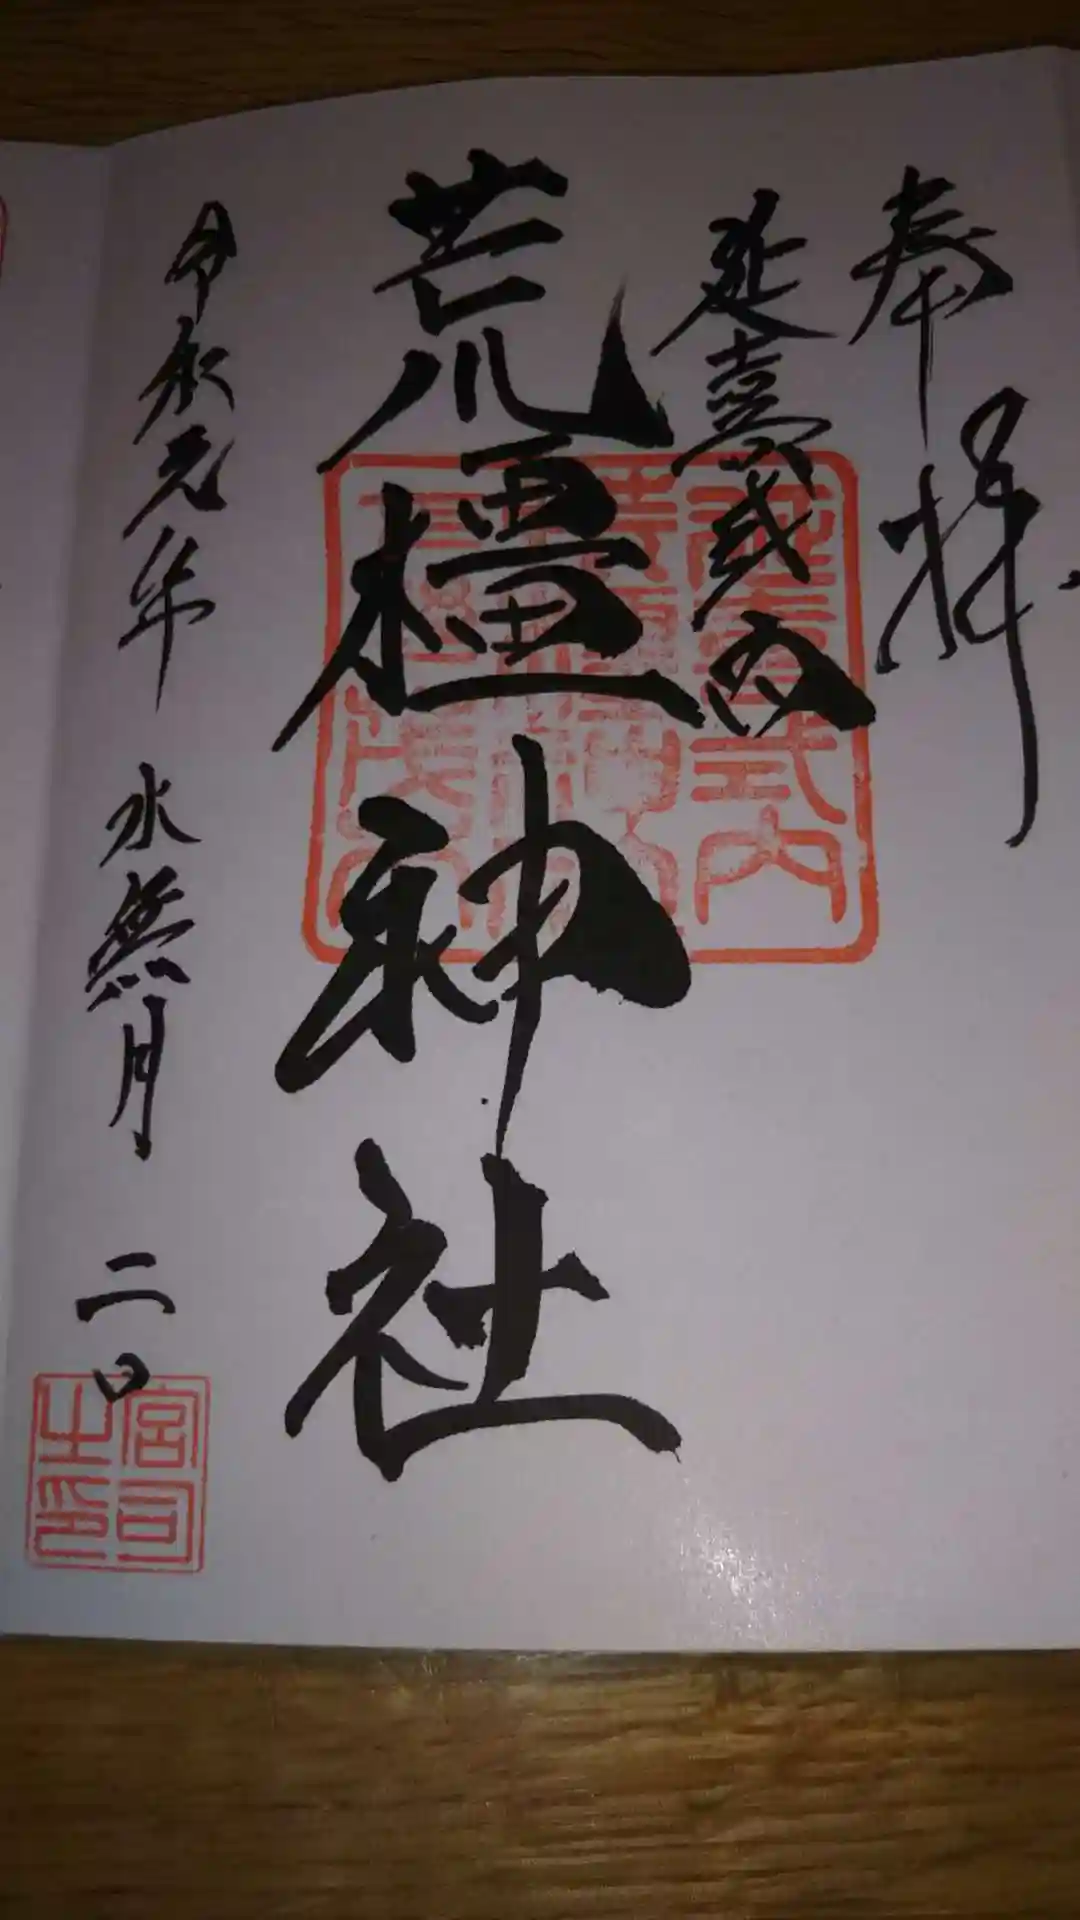 奉拝
延喜式内
荒橿神社
令和元年 水無月 二日
延喜式内
荒橿神社
宮司
之印